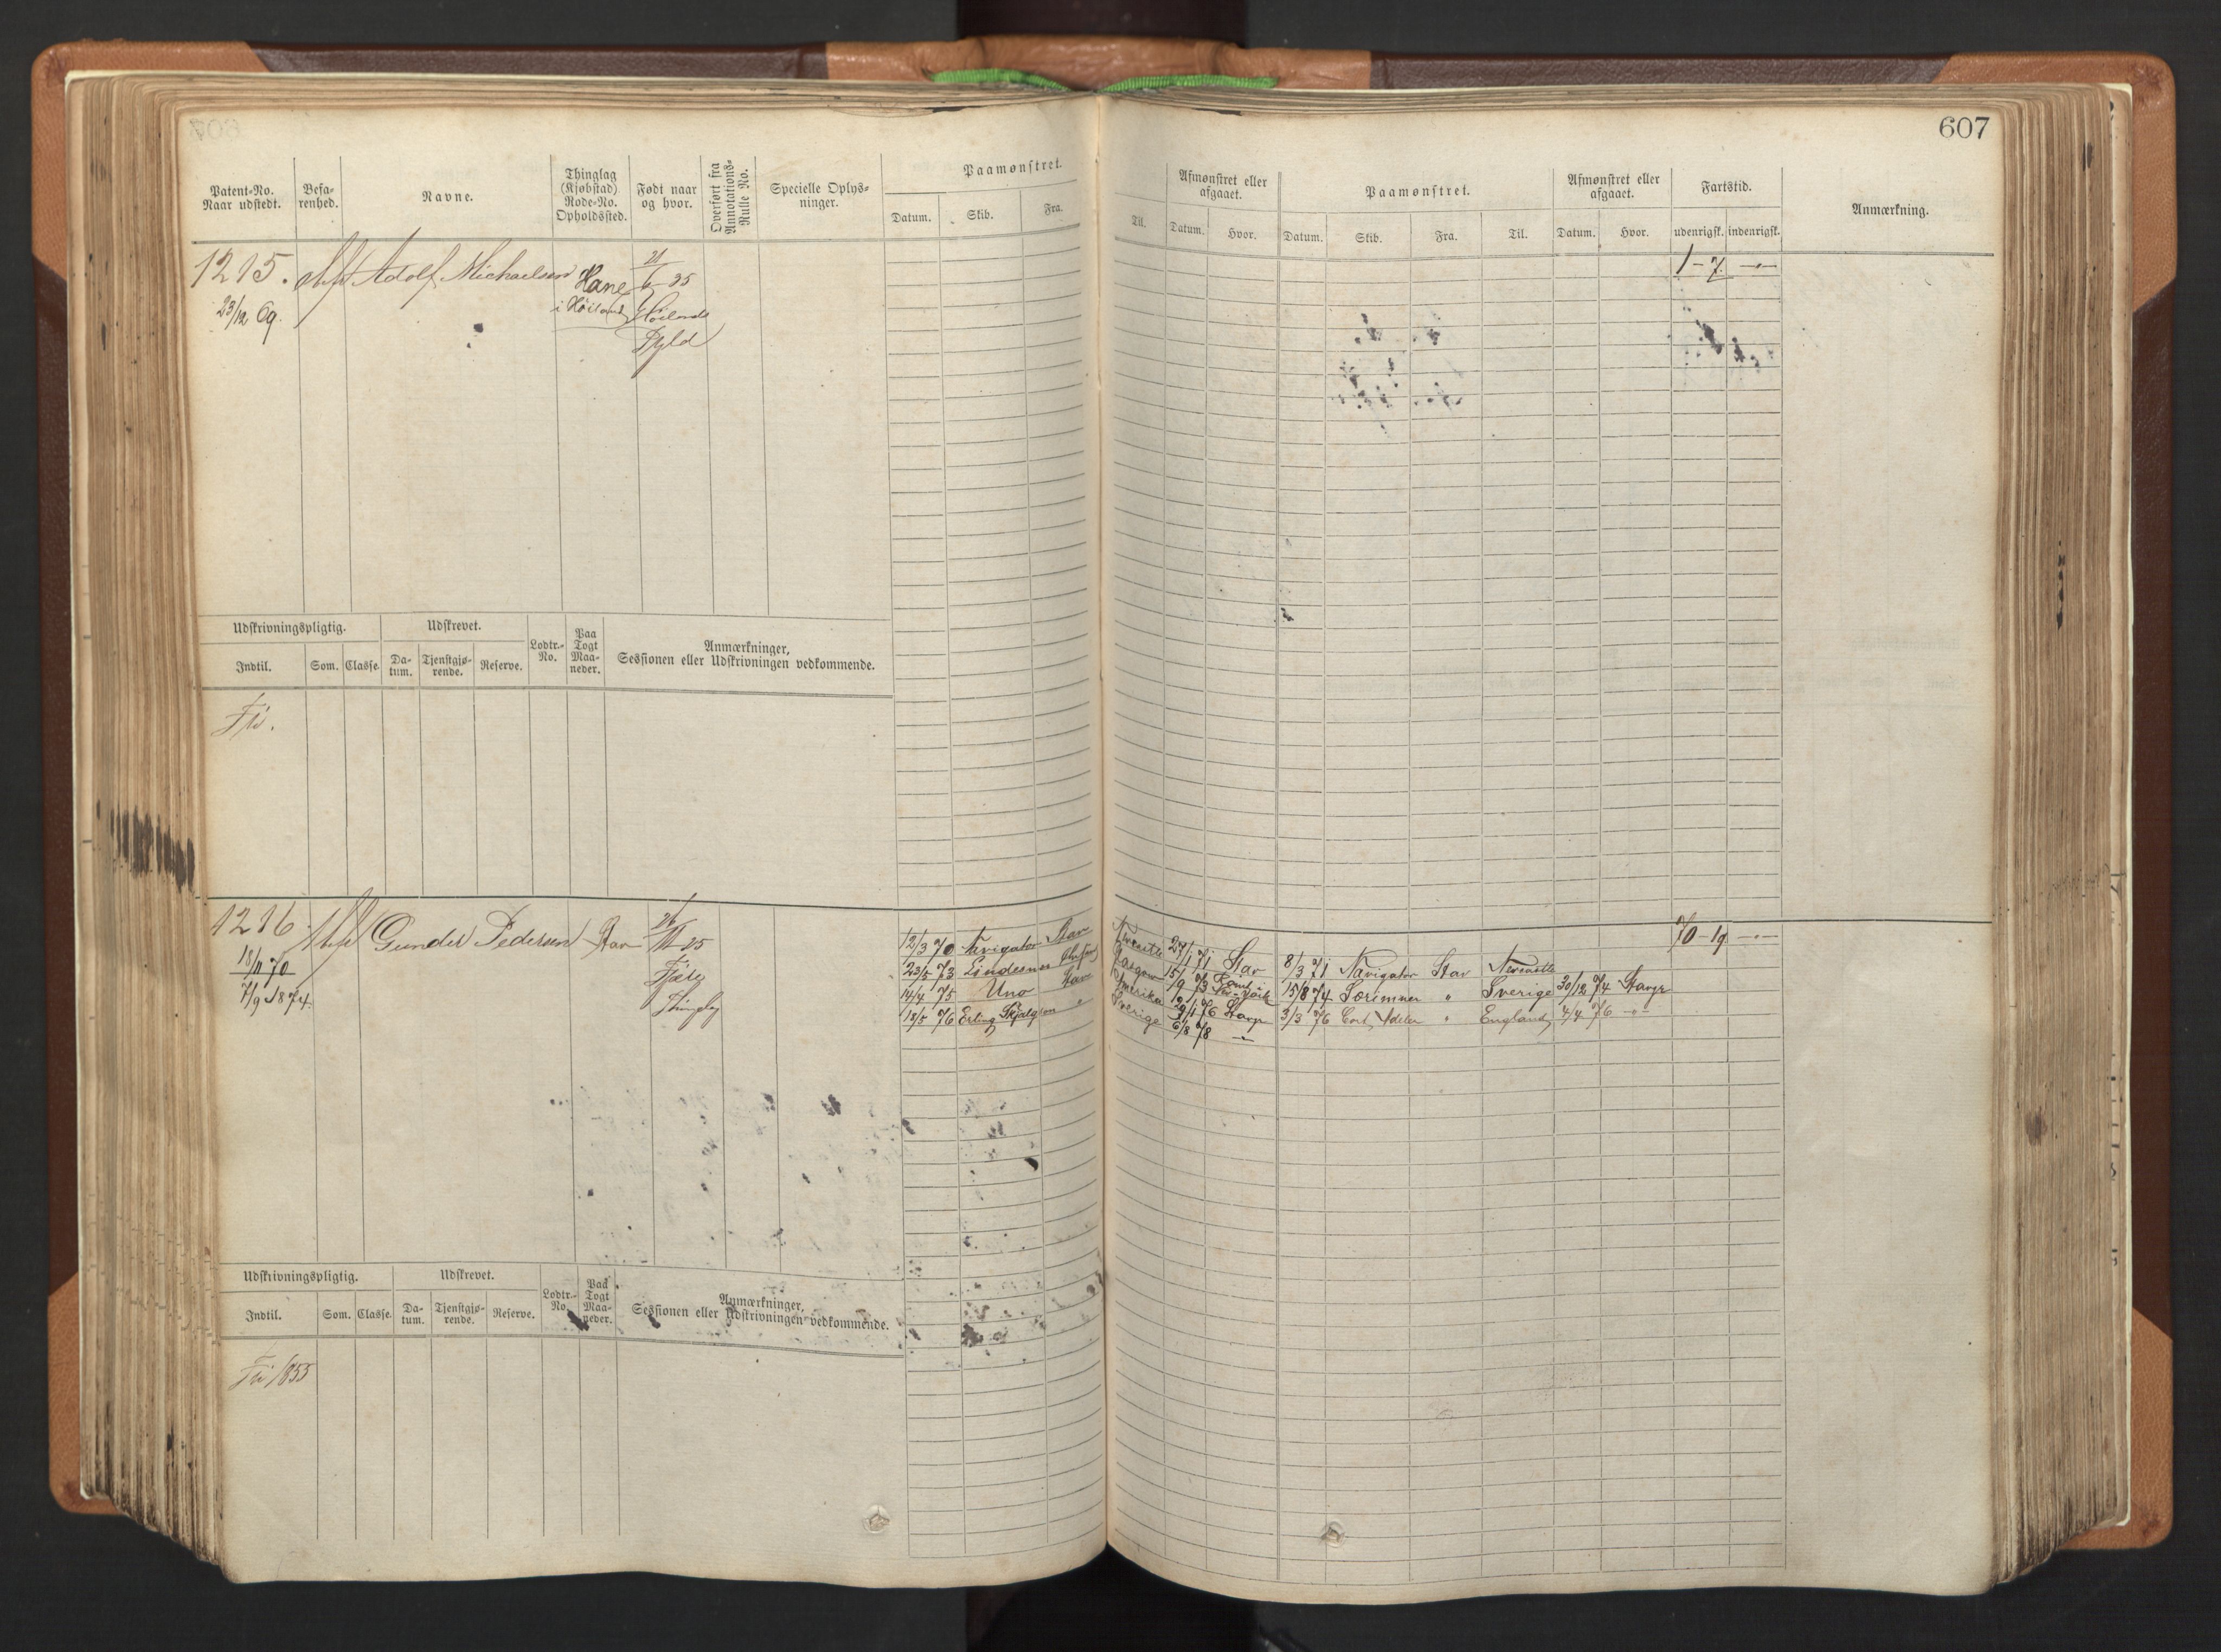 607
Patent-No. Naar udstedt.
Befarenhed.
Navne.
Thinglag (Kjøbstad) Rode-No. Opholdssted.
Født naar og hvor.
Overført fra Annotations-Rulle No.
Specielle Oplysninger.
Paamønstret.
Datum. Skib. Fra. Til.
Afmønstret eller afgaaet.
Datum. Hvor.
Paamønstret.
Datum. Skib. Fra. Til.
Afmønstret eller afgaaet.
Datum. Hvor.
Fartstid.
udenrigsk. indenrigsk.
Anmærkning.
1215. Adolf Michaelsen Hane 21/6 35 1-7
23/12 69. i Høiland Høilands
Fjeld
Udskrivningspligtig. Udskrevet. Lodtr.-No. Paa Togt Maaneder. Anmærkninger, Sessionen eller Udskrivningen vedkommende.
Indtil. Som. Classe. Datum. Tjenstgjørende. Reserve.
Fri.
1216 Gunder Pedersen Stav 25 70-19
18/11 70
7/9 1874.
12/3 70 Navigator Stav Newcastle 24/1 71 Stav 8/3 71 Navigator Stav Newcastle
23/5 73 Lindesnes Glasgow 15/9 73 15/8 74 Særimner " Sverige 30/12 74 Stavgr
14/4 75 Uno Stav Amerika 76 Stavgr 3/3 76 Cort Adeler " England 4/4 76 -"-
18/5 76 Erling Skjalgson " Sverige 6/8 78 -"-
Udskrivningspligtig. Udskrevet. Lodtr.-No. Paa Togt Maaneder. Anmærkninger, Sessionen eller Udskrivningen vedkommende.
Indtil. Som. Classe. Datum. Tjenstgjørende. Reserve.
Fri 1855